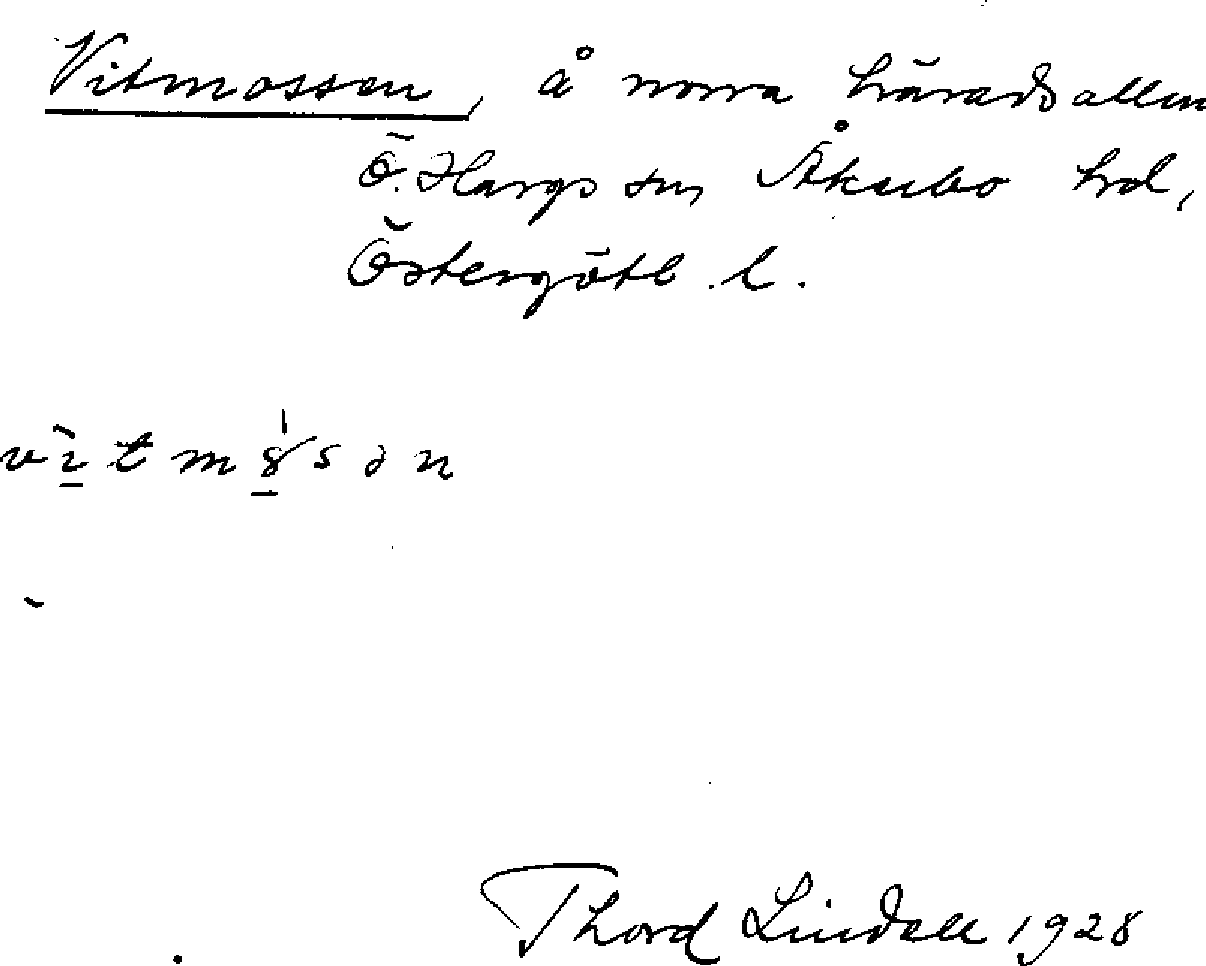 Vitmossen, å norra häradsallm
Ö. Hargs sn, Åkerbo hd,
Östergötl. l.
Thord Lindell 1928